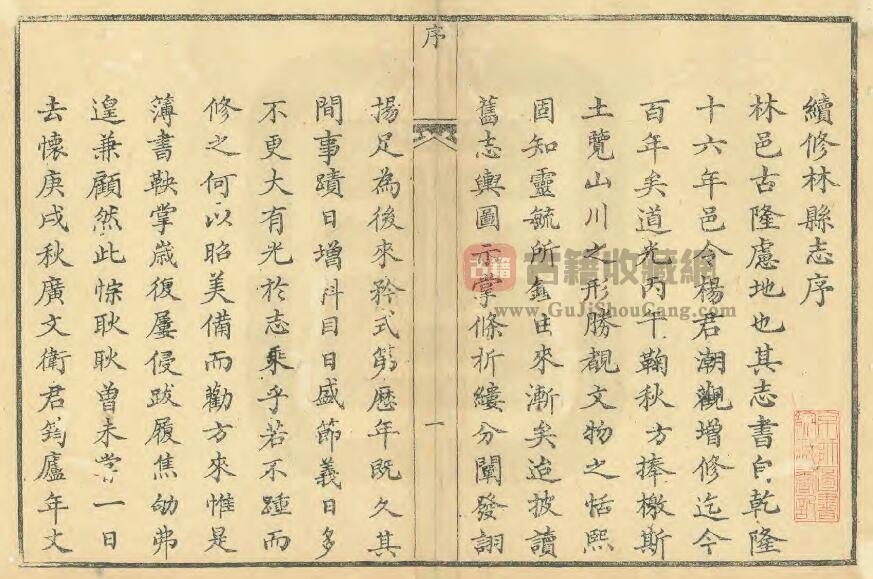 續修林縣志序
林邑古隆慮地也其志書自乾隆
十六年邑令楊君潮觀增修迄今
百年矣道光丙午鞠秋方捧檄斯
土覽山川之形勝覩文物之恬熙
固知靈毓所鍾由來漸矣迨披讀
舊志輿圖示掌條析縷分闡發詡
序
一
揚足為後來矜式第歷年既久其
間事蹟日增科目日盛節義日多
不更大有光於志乘乎若不踵而
修之何以昭美備而勸方來惟是
薄書鞅掌歲復屢侵跋履焦劬弗
遑兼顧然此悰耿耿曾未嘗一日
去懷庚戌秋廣文衛君筠廬年丈
古籍 古籍收藏網
www.GuJiShouCang.com